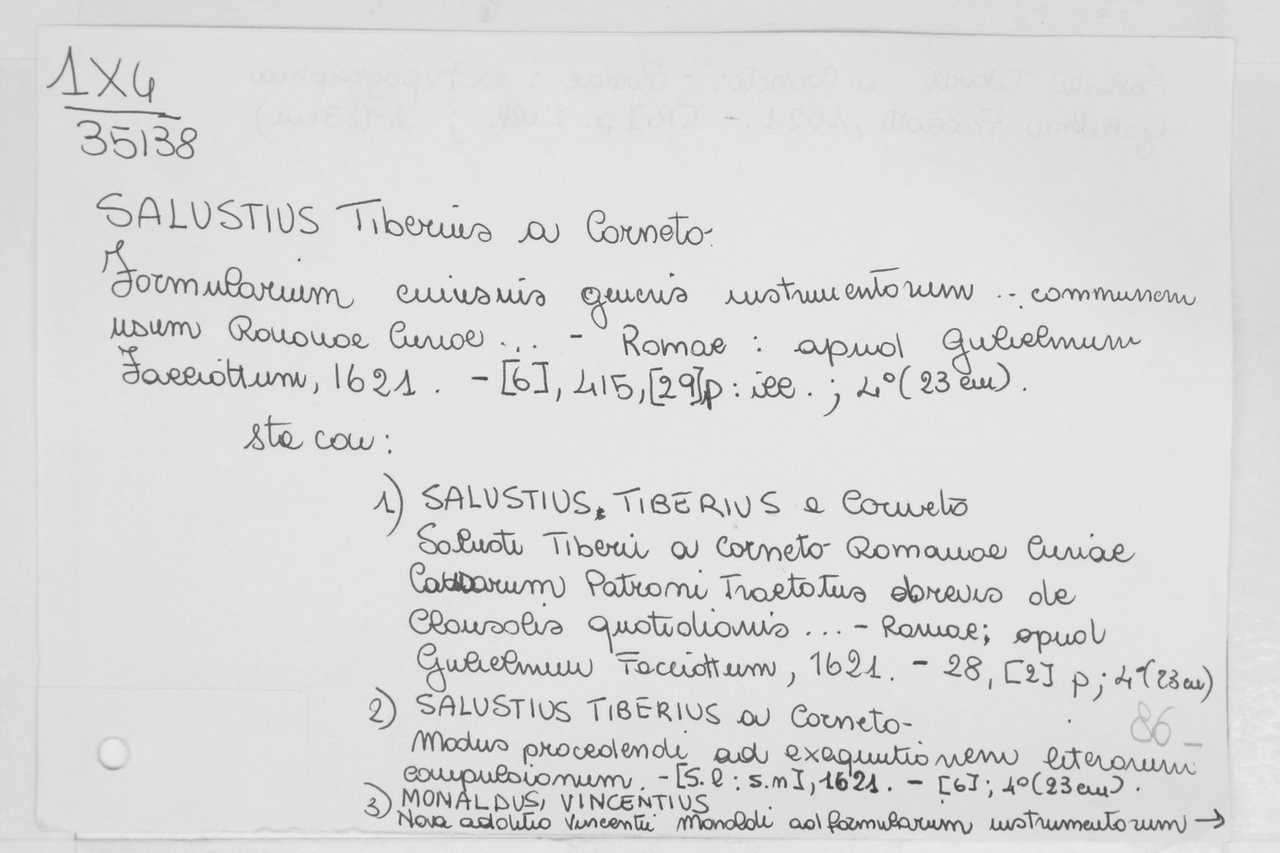 1X4
35138
SALUSTIUS Tiberius a Corneto.
Formularium cuiusuis generis instrumentorum ... communem
usum Romanae Curiae ... - Romae : apud Gulielmum
Facciottum, 1621. - [6], 415, [29] p : ill. ; 4° (23 cm).
sta con :
1) SALUSTIUS, TIBERIUS a Corneto
Salusti Tiberii a Corneto Romanae Curiae
Causarum Patroni Tractatus brevis de
Clausolis quotidianis ... - Romae ; apud
Gulielmum Facciottum, 1621. - 28, [2] p ; 4° (23 cm)
2) SALUSTIUS TIBERIUS a Corneto -
86 -
Modus procedendi ad exaquutionem literarum
compulsionum. - [S.l : s.n], 1621. - [6] ; 4° (23 cm).
3) MONALDUS, VINCENTIUS
Nova additio Vincentii Monaldi ad formularium instrumentorum →